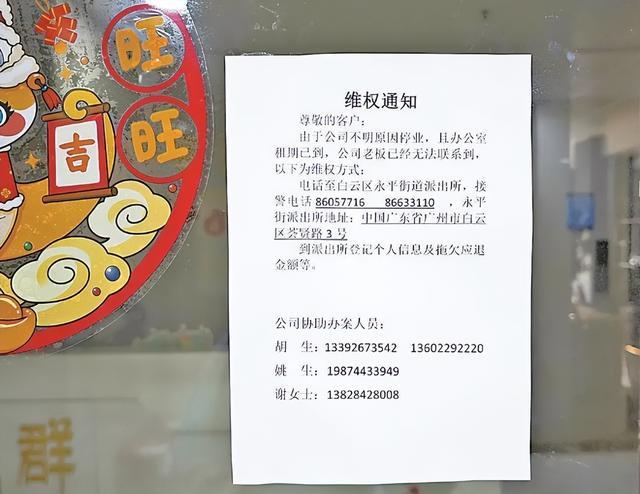 旺
旺
吉
群
维权通知
尊敬的客户：
由于公司不明原因停业，且办公室
租期已到，公司老板已经无法联系到，
以下为维权方式：
电话至白云区永平街道派出所，接
警电话 86057716 86633110 ，永平
街派出所地址：中国广东省广州市白云
区荟贤路 3 号
到派出所登记个人信息及拖欠应退
金额等。
公司协助办案人员：
胡 生：13392673542 13602292220
姚 生：19874433949
谢女士：13828428008